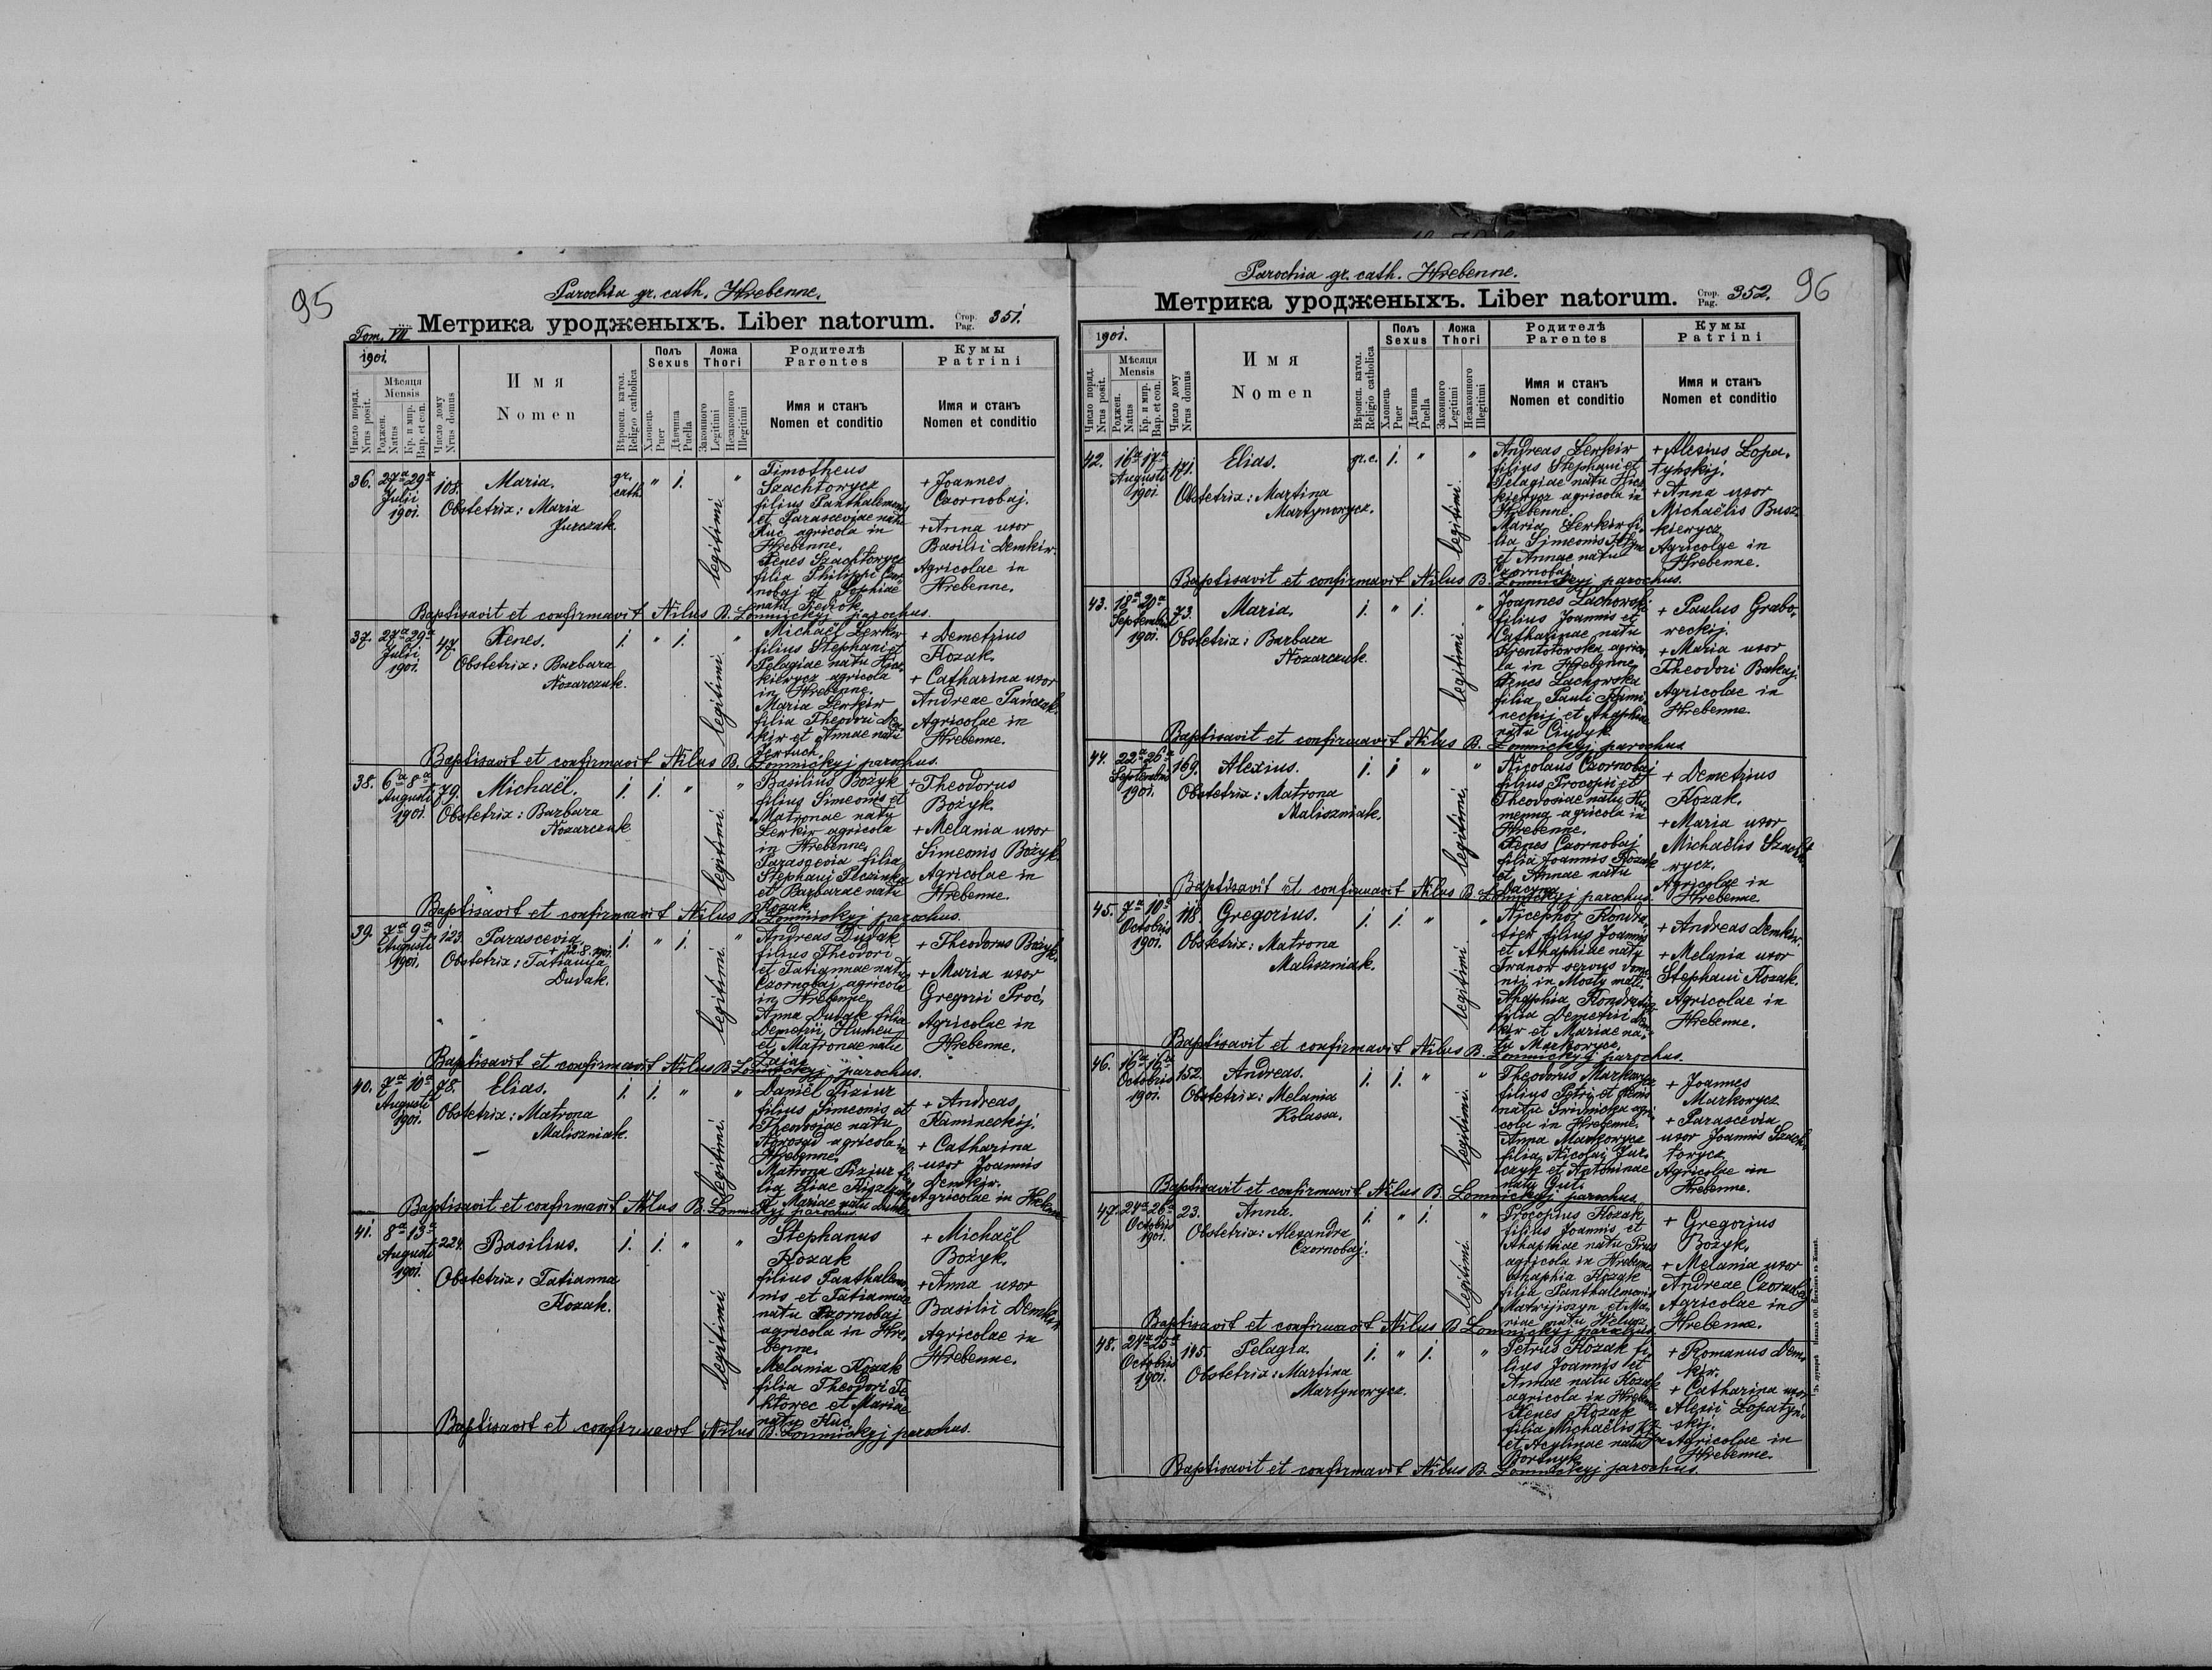 95
Parochia gr. cath. Hrebenne.
Tom. VII
Метрика уродженыхъ. Liber natorum.
Стор.
Pag.
351.
1901.
Число поряд.
Nrus posit.
Мѣсяця
Mensis
Роджен.
Natus
Кр. и мир.
Bap. et con.
Число дому
Nrus domus
Имя
Nomen
Вѣроисп. катол.
Religio catholica
Полъ
Sexus
Хлопець
Puer
Дѣвчина
Puella
Ложа
Thori
Законного
Legitimi
Незаконного
Illegitimi
Родителѣ
Parentes
Имя и станъ
Nomen et conditio
Кумы
Patrini
Имя и станъ
Nomen et conditio
36. 27ª 29ª
Julii
1901.
108. Maria.
Obstetrix: Maria
Jurczak.
gr.
cath.
" 1.
legitimi.
"
Timotheus
Szachtorycz
filius Panthalemonis
et Parasceviae natu
Kuc agricola in
Hrebenne.
Xenes Szachtorycz
filia Philippi Czor-
nobaj et Sophiae
natu Fediok.
+ Joannes
Czornobaj.
+ Anna uxor
Basilii Demkir.
Agricolae in
Hrebenne.
Baptisavit et confirmavit Nilus B. Lomnickyj parochus.
37. 27ª 29ª
Julii
1901.
47. Xenes.
Obstetrix: Barbara
Nozarczuk.
1. " 1.
legitimi.
"
Michaël Lerkir
filius Stephani et
Pelagiae natu Hicz-
kierycz agricola
in Hrebenne.
Maria Lerkir
filia Theodori Dem-
kir et Annae natu
Jertuch.
+ Demetrius
Kozak.
+ Catharina uxor
Andreae Pańczak.
Agricolae in
Hrebenne.
Baptisavit et confirmavit Nilus B. Lomnickyj parochus.
38. 6ª 8ª
Augusti
1901.
79. Michaël.
Obstetrix: Barbara
Nozarczuk
1. 1. "
legitimi.
"
Basilius Bożyk
filius Simeonis et
Matronae natu
Lerkir agricola
in Hrebenne.
Parascevia filia
Stephani
et Barbarae natu
Kozak
+ Theodorus
Bożyk.
+ Melania uxor
Simeonis Bożyk.
Agricolae in
Hrebenne.
Baptisavit et confirmavit Nilus B. Lomnickyj parochus.
39. 7ª 9ª
Augusti
1901.
123. Parascevia.
+ 22.8.1901.
Obstetrix: Tatianna
Dudak.
1. " 1.
legitimi.
"
Andreas Dudak
filius Theodori
et Tatiannae natu
Czornobaj agricola
in Hrebenne.
Anna Dudak filia
Demetrii Humen
et Matronae natu
Zając.
+ Theodorus Bożyk.
+ Maria uxor
Gregorii Proć.
Agricolae in
Hrebenne.
Baptisavit et confirmavit Nilus B. Lomnickyj parochus.
40. 7ª 10ª
Augusti
1901.
78. Elias.
Obstetrix: Matrona
Maliszniak.
1. 1. "
legitimi.
"
Daniël Piziur
filius Simeonis et
Theodosiae natu
agricola in
Hrebenne.
Matrona Piziur fi-
lia Eliae
et Mariae natu
+ Andreas
Kamineckij.
+ Catharina
uxor Joannis
Demkir.
Agricolae in Hrebenne
Baptisavit et confirmavit Nilus B. Lomnickyj parochus
41. 8ª 13ª
Augusti
1901.
224. Basilius.
Obstetrix: Tatianna
Kozak.
1. 1. "
legitimi.
"
Stephanus
Kozak
filius Panthalemo-
nis et Tatiannae
natu Czornobaj
agricola in Hre-
benne.
Melania Kozak
filia Theodori Fe-
ktorec et Mariae
natu Kuc.
+ Michaël
Bożyk.
+ Anna uxor
Basilii Demkir
Agricolae in
Hrebenne.
Baptisavit et confirmavit Nilus B. Lomnickyj parochus.
96
Parochia gr. cath. Hrebenne.
Метрика уродженыхъ. Liber natorum.
Стор.
Pag.
352.
1901.
Число поряд.
Nrus posit.
Мѣсяця
Mensis
Роджен.
Natus
Кр. и мир.
Bap. et con.
Число дому
Nrus domus
Имя
Nomen
Вѣроисп. катол.
Religio catholica
Полъ
Sexus
Хлопець
Puer
Дѣвчина
Puella
Ложа
Thori
Законного
Legitimi
Незаконного
Illegitimi
Родителѣ
Parentes
Имя и станъ
Nomen et conditio
Кумы
Patrini
Имя и станъ
Nomen et conditio
42. 16ª 17ª
Augusti
1901.
171. Elias.
Obstetrix: Martina
Martynorycz.
gr. c. 1. "
legitimi.
"
Andreas Lerkir
filius Stephani et
Pelagiae natu Hicz-
kierycz agricola in
Hrebenne.
Maria Lerkir fi-
lia Simeonis
et Annae natu
Czornobaj.
+ Alexius Lopa-
tyńskij.
+ Anna uxor
Michaëlis Busz-
kierycz
Agricolae in
Hrebenne.
Baptisavit et confirmavit Nilus B. Lomnickyj parochus.
43. 18ª 20ª
Septembris
1901.
73. Maria.
Obstetrix: Barbara
Nozarczuk.
1. " 1.
legitimi.
"
Joannes Lachowski
filius Joannis et
Catharinae natu
agrico-
la in Hrebenne.
Xenes Lachowska
filia Pauli Kami-
neckij et Ahaphiae
natu Ciudyk.
+ Paulus Grabo-
weckij.
+ Maria uxor
Theodori Bakaj.
Agricolae in
Hrebenne.
Baptisavit et confirmavit Nilus B. Lomnickyj parochus
44. 22ª 26ª
Septembris
1901.
169. Alexius.
Obstetrix: Matrona
Maliszniak.
1. 1 "
legitimi.
"
Nicolaus Czornobaj
filius Procopii et
Theodosiae natu Hu-
menna agricola in
Hrebenne.
Xenes Czornobaj
filia Joannis Kozak
et Annae natu
+ Demetrius
Kozak.
+ Maria uxor
Michaëlis Szachto-
rycz.
Agricolae in
Hrebenne
Baptisavit et confirmavit Nilus B. Lomnickyj parochus.
45. 7ª 10ª
Octobris
1901.
118. Gregorius.
Obstetrix: Matrona
Maliszniak.
1. 1. "
legitimi
"
Nicephor Kondra-
tier filius Joannis
et Ahaphiae natu
Iranor servus domi-
nii in Mosty małe.
Ahaphia Kondratier
filia Demetrii Dem-
kir et Mariae na-
tu Markorycz.
+ Andreas Demkir.
+ Melania uxor
Stephani Kozak.
Agricolae in
Hrebenne.
Baptisavit et confirmavit Nilus B. Lomnickyj parochus.
46. 16ª 16ª
Octobris
1901.
152. Andreas.
Obstetrix: Melania
Kolassa.
1. 1. "
legitimi.
"
Theodorus Markorycz
filius Petri et Xenis
natu agri-
cola in Hrebenne.
Anna Markorycz
filia Nicolai Jur-
czyk et Antoninae
natu Gut.
+ Joannes
Markorycz
+ Parascevia
uxor Joannis Szach-
torycz
Agricolae in
Hrebenne.
Baptisavit et confirmavit Nilus B. Lomnickyj parochus.
47. 24ª 26ª
Octobris
1901.
23. Anna.
Obstetrix: Alexandra
Czornobaj.
1. " 1.
legitimi.
"
Procopius Kozak
filius Joannis et
Ahaphiae natu
agricola in Hrebenne
Ahaphia Kozak
filia Panthalemonis
Matrijiszyn et Ma-
riae natu
+ Gregorius
Bożyk.
+ Melania uxor
Andreae Czornobaj
Agricolae in
Hrebenne.
Baptisavit et confirmavit Nilus B. Lomnickyj parochus.
48. 24ª 25ª
Octobris
1901.
105. Pelagia.
Obstetrix: Martina
Martynorycz.
1. " 1.
"
Petrus Kozak fi-
lius Joannis et
Annae natu Kozak
agricola in Hrebenne
Xenes Kozak
filia Michaëlis
et Acylinae natu
Bortnyk
+ Romanus Dem-
kir.
+ Catharina uxor
Alexii Lopatyń-
skij.
Agricolae in
Hrebenne.
Baptisavit et confirmavit Nilus B. Lomnickyj parochus.